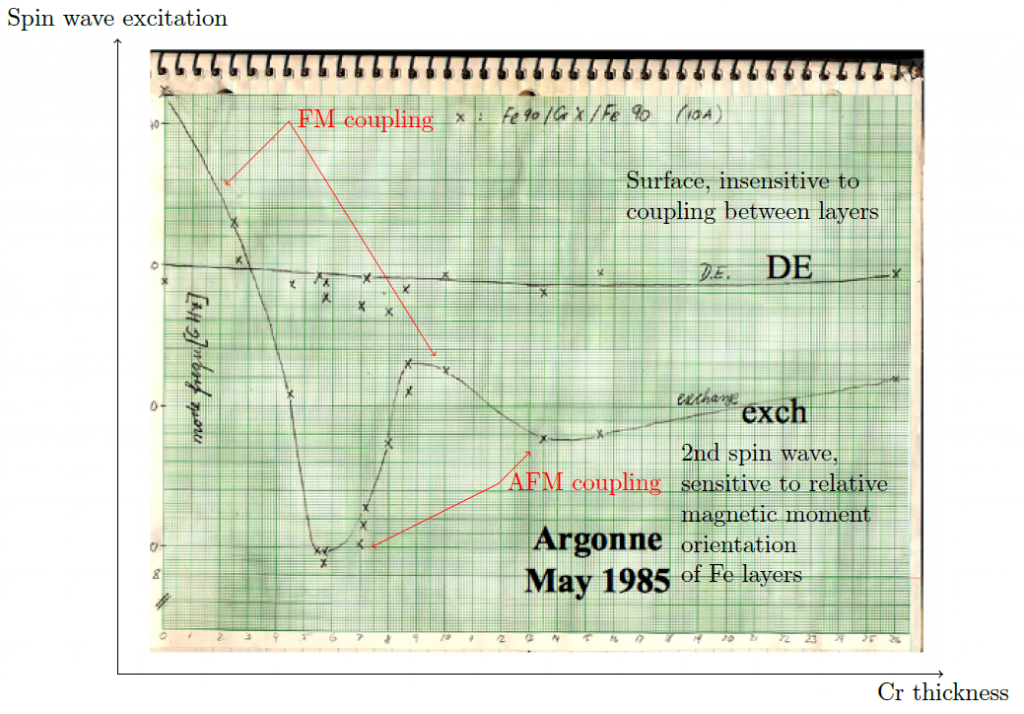 Spin wave excitation
FM coupling
x : Fe 90 / Cr X / Fe 90 (10A)
Surface, insensitive to
coupling between layers
D.E. DE
mode frequ. [GHz]
exchange
exch
2nd spin wave,
sensitive to relative
magnetic moment
orientation
of Fe layers
AFM coupling
Argonne
May 1985
8
0 1 2 3 4 5 6 7 8 9 10 11 12 13 14 15 16 17 18 19 20 21 22 23 24 25 26
Cr thickness